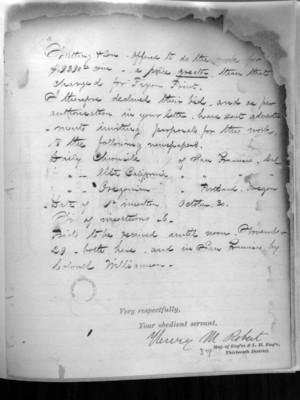 Nutting & Son - offered to do the work for
$8390 00 - a price greater than that
charged for Fagon Point.
I therefore declined their bid, and as per
authorization in your letter have sent advertise
ments inviting proposals for this work,
to the following newspapers.
Daily Chronicle of San Francisco, Cal
" Alta California " "
" Oregonian " Portland, Oregon
Date of 1st insertion October 30.
No of insertions 6.
Bids to be received until noon November
29 - both here and in San Francisco by
Colonel Williamson -
Very respectfully,
Your obedient servant,
Henry M. Robert
Maj. of Eng'rs & L. H. Eng'r,
Thirteenth District.